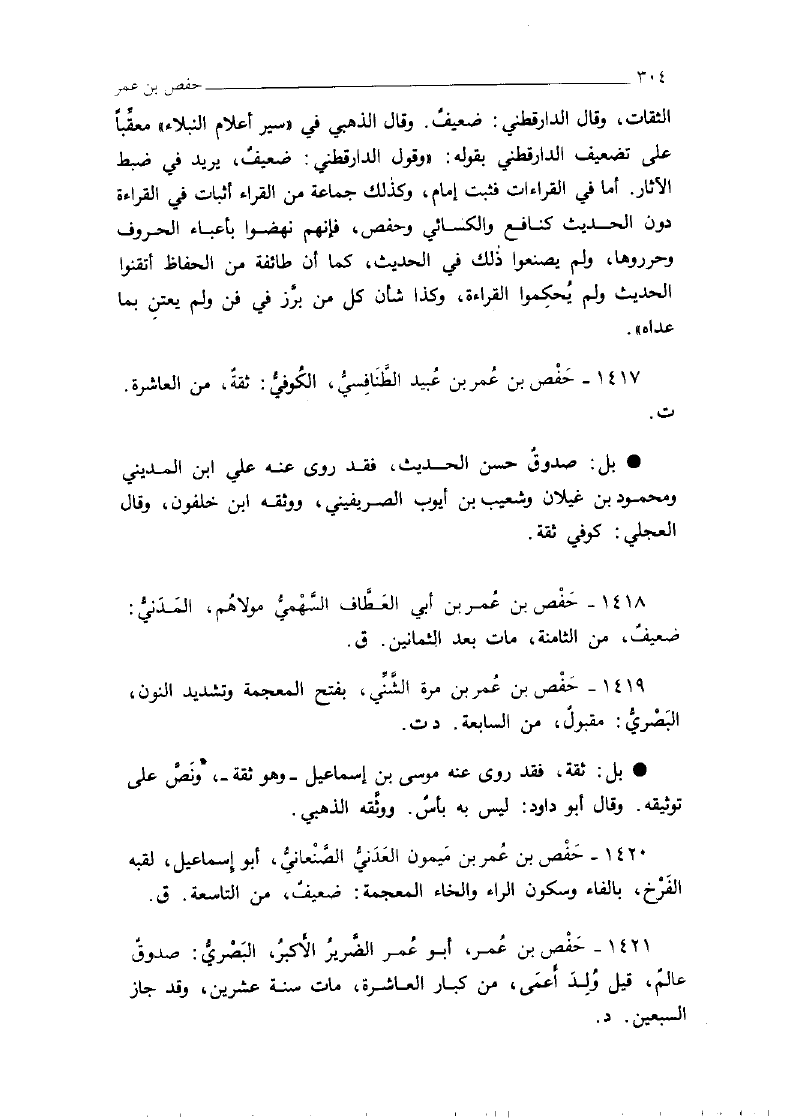 ٣٠٤ حفص بن عمر
الثقات، وقال الدارقطني: ضعيفٌ. وقال الذهبي في «سير أعلام النبلاء» معقِّباً
على تضعيف الدارقطني بقوله: «وقول الدارقطني: ضعيفٌ، يريد في ضبط
الآثار. أما في القراءات فثبت إمام، وكذلك جماعة من القراء أثبات في القراءة
دون الحديث كنافع والكسائي وحفص، فإنهم نهضوا بأعباء الحروف
وحرروها، ولم يصنعوا ذلك في الحديث، كما أن طائفة من الحفاظ أتقنوا
الحديث ولم يُحكِموا القراءة، وكذا شأن كل من برَّز في فن ولم يعتنِ بما
عداه».
١٤١٧ - حَفْص بن عُمر بن عُبيد الطَّنَافِسيُّ، الكُوفيُّ: ثقةٌ، من العاشرة.
ت.
● بل: صدوقٌ حسن الحديث، فقد روى عنه علي ابن المديني
ومحمود بن غيلان وشعيب بن أيوب الصريفيني، ووثقه ابن خلفون، وقال
العجلي: كوفي ثقة.
١٤١٨ - حَفْص بن عُمر بن أبي العَطَّاف السَّهْميُّ مولاهُم، المَدَنيُّ:
ضعيفٌ، من الثامنة، مات بعد الثمانين. ق.
١٤١٩ - حَفْص بن عُمر بن مرة الشَّنِّي، بفتح المعجمة وتشديد النون،
البَصْريُّ: مقبولٌ، من السابعة. د ت.
● بل: ثقة، فقد روى عنه موسى بن إسماعيل - وهو ثقة -، ونَصَّ على
توثيقه. وقال أبو داود: ليس به بأسٌ. ووثَّقه الذهبي.
١٤٢٠ - حَفْص بن عُمر بن مَيمون العَدَنيُّ الصَّنْعانيُّ، أبو إسماعيل، لقبه
الفَرْخ، بالفاء وسكون الراء والخاء المعجمة: ضعيفٌ، من التاسعة. ق.
١٤٢١ - حَفْص بن عُمر، أبو عُمر الضَّريرُ الأكبرُ، البَصْريُّ: صدوقٌ
عالمٌ، قيل وُلِدَ أعمَى، من كبار العاشرة، مات سنة عشرين، وقد جاز
السبعين. د.